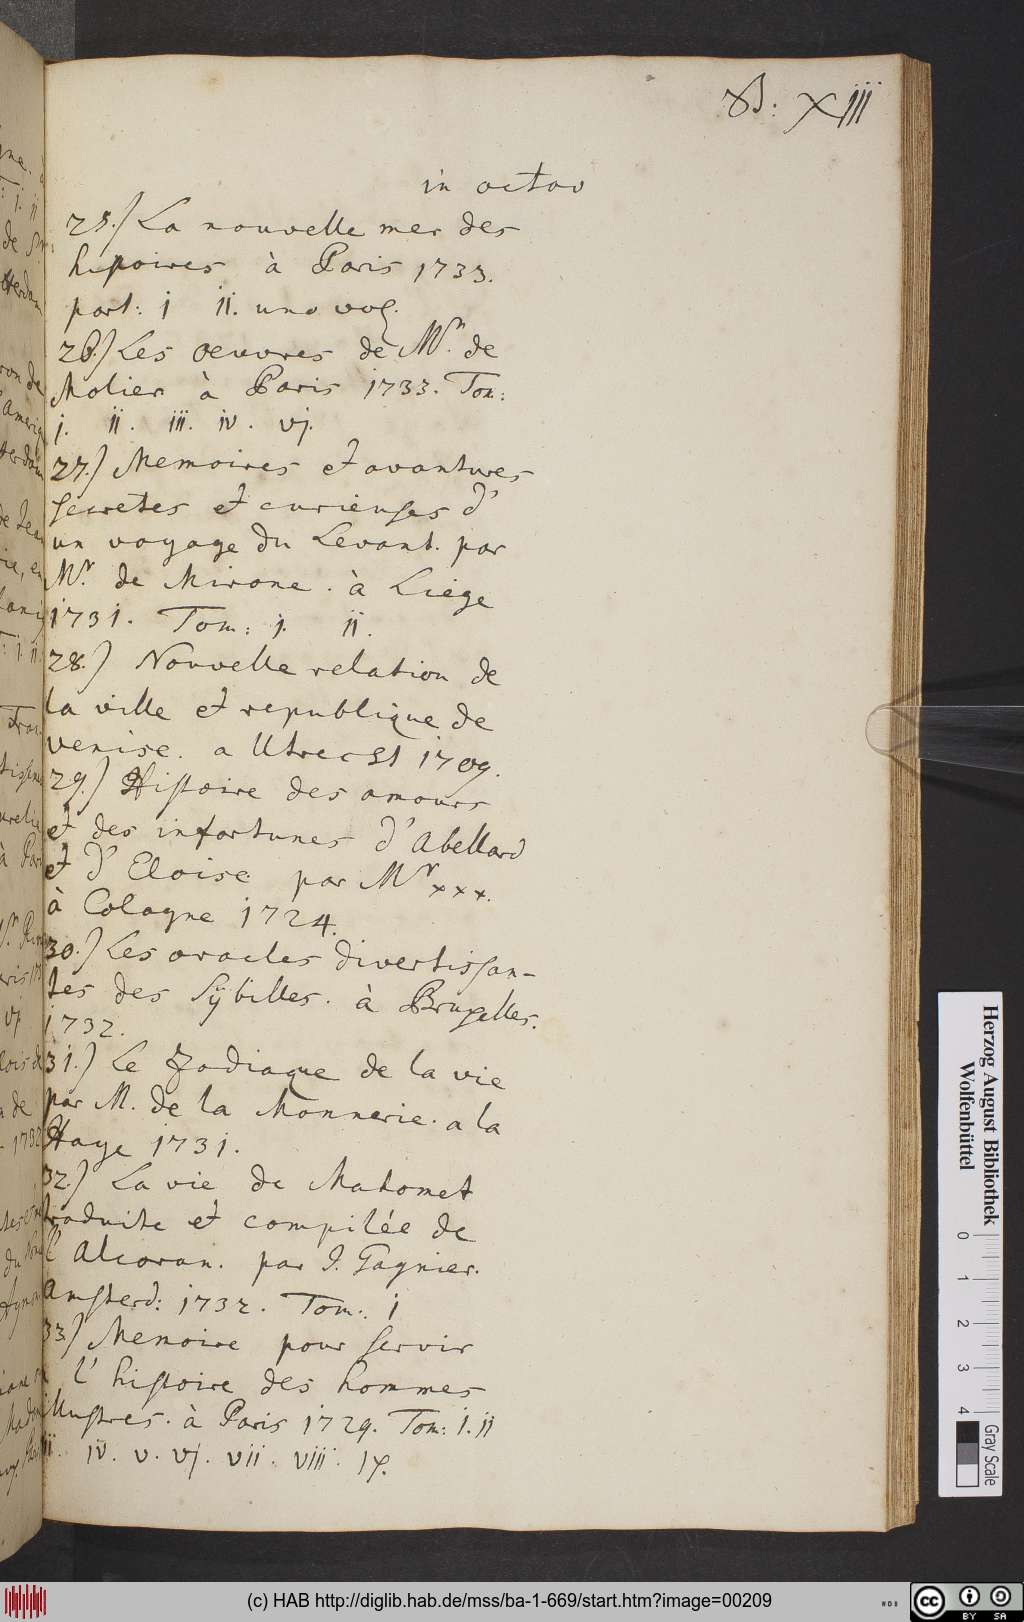 B: XIII
in octav
25.) La nouvelle mer des
histoires à Paris 1733.
part: I II. uno vol.
26.) Les oeuvres de Mr. de
Molier à Paris 1733. Tom:
I. II. III. IV. VI.
27.) Memoires et avantures
secretes et curieuses d'
un voyage du Levant. par
Mr. de Mirone. à Liége
1731. Tom: I. II.
28.) Nouvelle relation de
la ville et republique de
venise. a Utrecht 1709.
29.) Histoire des amours
et des infortunes d'Abellard
et d'Eloise par Mr xxx.
à Cologne 1724.
30.) Les oracles divertissan-
tes des Sÿbilles. à Bruxelles.
1732.
31.) Le Zodiaque de la vie
par M. de la Monnerie. a la
Haye 1731.
32.) La vie de Mahomet
traduite et compilée de
l'Alcoran. par J. Gagnier.
Amsterd: 1732. Tom: I
33.) Memoire pour servir
l'histoire des hommes
illustres. à Paris 1729. Tom: I. II
III. IV. V. VI. VII. VIII. IX.
Herzog August Bibliothek
Wolfenbüttel
0 1 2 3 4
Gray Scale
(c) HAB http://diglib.hab.de/mss/ba-1-669/start.htm?image=00209
WDB
CC BY SA